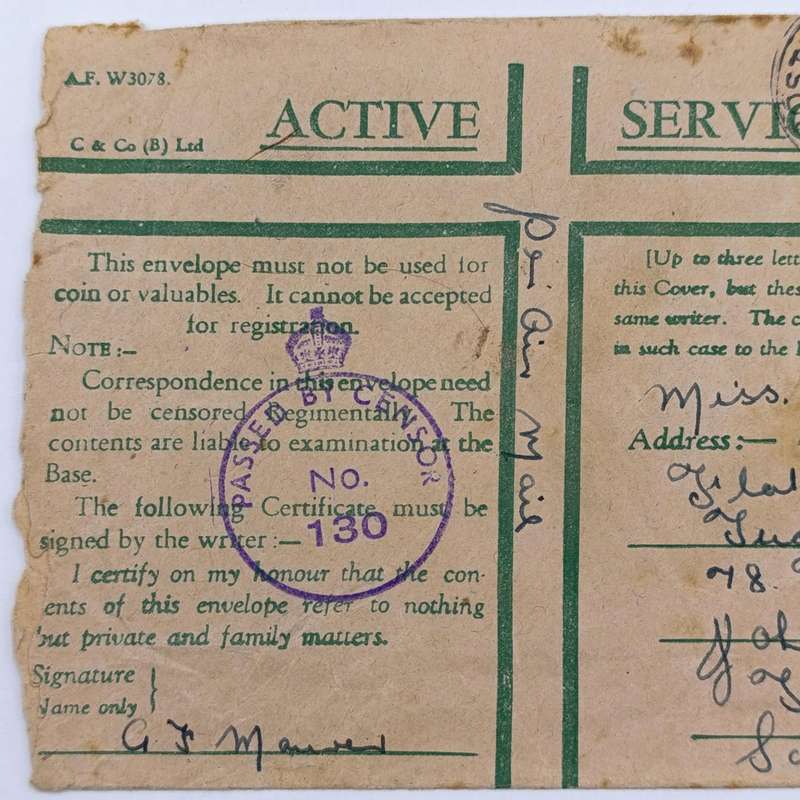 A.F. W3078.
C & Co (B) Ltd
ACTIVE SERVI
Per Air Mail
This envelope must not be used for
coin or valuables. It cannot be accepted
for registration.
NOTE :–
Correspondence in this envelope need
not be censored Regimentally. The
contents are liable to examination at the
Base.
The following Certificate must be
signed by the writer :—
I certify on my honour that the con-
ents of this envelope refer to nothing
but private and family matters.
Signature
Name only
G F
PASSED BY CENSOR
No.
130
[Up to three lett
this Cover, but thes
same writer. The c
in such case to the
Miss.
Address :—
78.